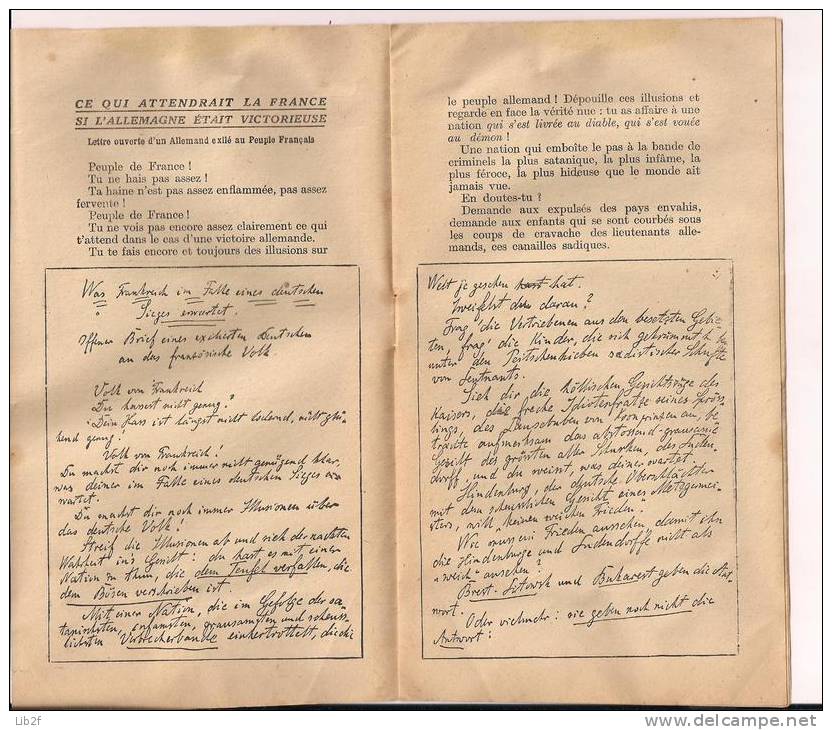 CE QUI ATTENDRAIT LA FRANCE
SI L'ALLEMAGNE ÉTAIT VICTORIEUSE
Lettre ouverte d'un Allemand exilé au Peuple Français
Peuple de France !
Tu ne hais pas assez !
Ta haine n'est pas assez enflammée, pas assez
fervente !
Peuple de France !
Tu ne vois pas encore assez clairement ce qui
t'attend dans le cas d'une victoire allemande.
Tu te fais encore et toujours des illusions sur
Was Frankreich im Falle eines deutschen
Sieges erwartet.
Offener Brief eines exilierten Deutschen
an das französische Volk.
Volk von Frankreich
Du hassest nicht genug!
Dein Hass ist längst nicht lodernd, nicht glü-
hend genug!
Volk von Frankreich!
Du machst dir noch immer nicht genügend klar,
was deiner im Falle eines deutschen Sieges er-
wartet.
Du machst dir noch immer Illusionen über
das deutsche Volk!
Streif die Illusionen ab und sieh der nackten
Wahrheit in's Gesicht: du hast es mit einer
Nation zu thun, die dem Teufel verfallen, die
dem Bösen verschrieben ist.
Mit einer Nation, die im Gefolge der sa-
tanischsten, infamsten, grausamsten und scheuss-
lichsten Verbrecherbande einhertrottelt, die die
le peuple allemand ! Dépouille ces illusions et
regarde en face la vérité nue : tu as affaire à une
nation qui s'est livrée au diable, qui s'est vouée
au démon !
Une nation qui emboîte le pas à la bande de
criminels la plus satanique, la plus infâme, la
plus féroce, la plus hideuse que le monde ait
jamais vue.
En doutes-tu ?
Demande aux expulsés des pays envahis,
demande aux enfants qui se sont courbés sous
les coups de cravache des lieutenants alle-
mands, ces canailles sadiques.
Welt je gesehen hat.
Zweifelst du daran?
Frag' die Vertriebenen aus den besetzten Gebie-
ten, frag' die Kinder, die sich gekrümmt haben
unter den Peitschenhieben sadistischer Schufte
von Leutnants.
Sieh dir die höllischen Gesichtszüge des
Kaisers, die freche Idiotenfratze seines Spröss-
lings, des Lausbuben von Kronprinzen an, be-
trachte aufmerksam das abstossend-grausame
Gesicht des grössten aller Schurken, des Luden-
dorff, und du weisst, was deiner wartet.
Hindenburg, der deutsche Oberschlächter
mit dem scheusslichen Gesicht eines Metzgermei-
sters, will "keinen weichen Frieden".
Wie muss ein Frieden aussehen, damit ihn
die Hindenburge und Ludendorffe nicht als
"weich" ansehen?
Brest-Litowsk und Bukarest geben die Ant-
wort.
Oder vielmehr: sie geben noch nicht die
Antwort:
Lib2f
www.delcampe.net